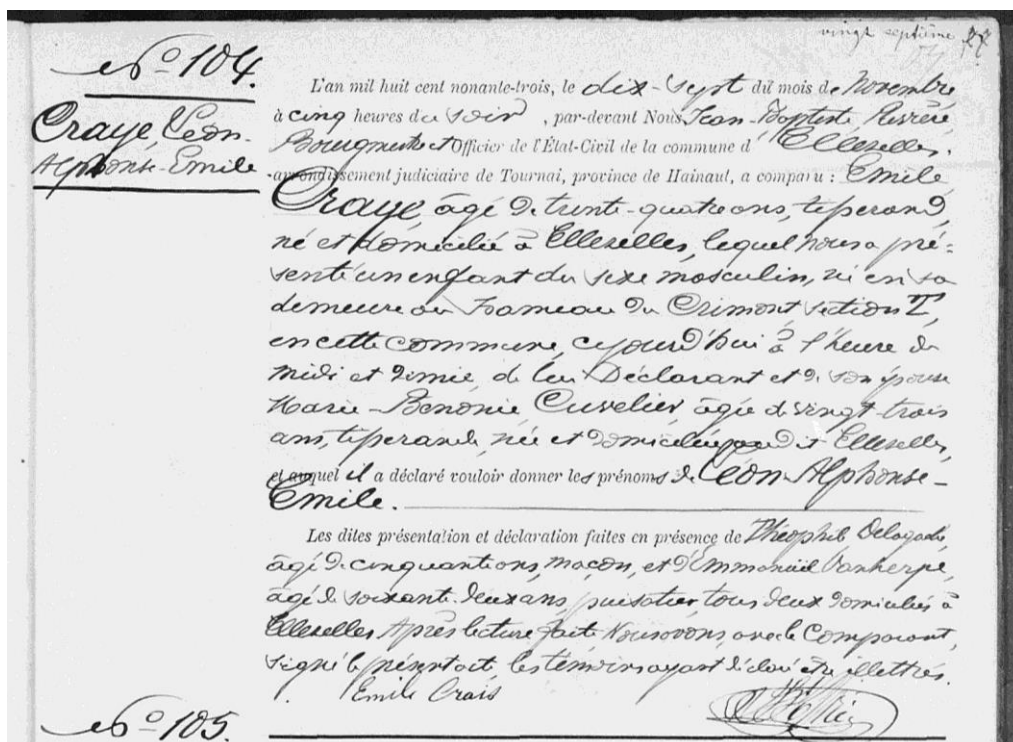 vingt septième 27
N° 104.
Craye, Léon-
Alphonse-Emile
L'an mil huit cent nonante-trois, le dix-sept du mois de Novembre
à cinq heures du soir, par-devant Nous Jean-Baptiste
Bourgmestre et Officier de l'État-Civil de la commune d'Ellezelles.
arrondissement judiciaire de Tournai, province de Hainaut, a comparu : Emile
Craye âgé de trente-quatre ans, tisserand,
né et domicilié à Ellezelles, lequel nous a pré-
senté un enfant du sexe masculin, né en sa
demeure au hameau du Crimont section I,
en cette commune, cejourd'hui à l'heure de
midi et demie, de lui Déclarant et de son épouse
Marie-Benonie Cuvelier, âgée de vingt-trois
ans, tisserande, née et domiciliée Ellezelles,
et auquel il a déclaré vouloir donner les prénoms de Léon-Alphonse-
Emile.
Les dites présentation et déclaration faites en présence de Théophile
âgé de cinquante ans, maçon, et d'Emmanuël Vanherpe,
âgé de soixante-deux ans, puisatier, tous deux domiciliés à
Ellezelles. Après lecture faite Nous avons, avec le Comparant,
signé le présent acte, les témoins ayant déclaré être illettrés.
Emile Crais
N° 105.